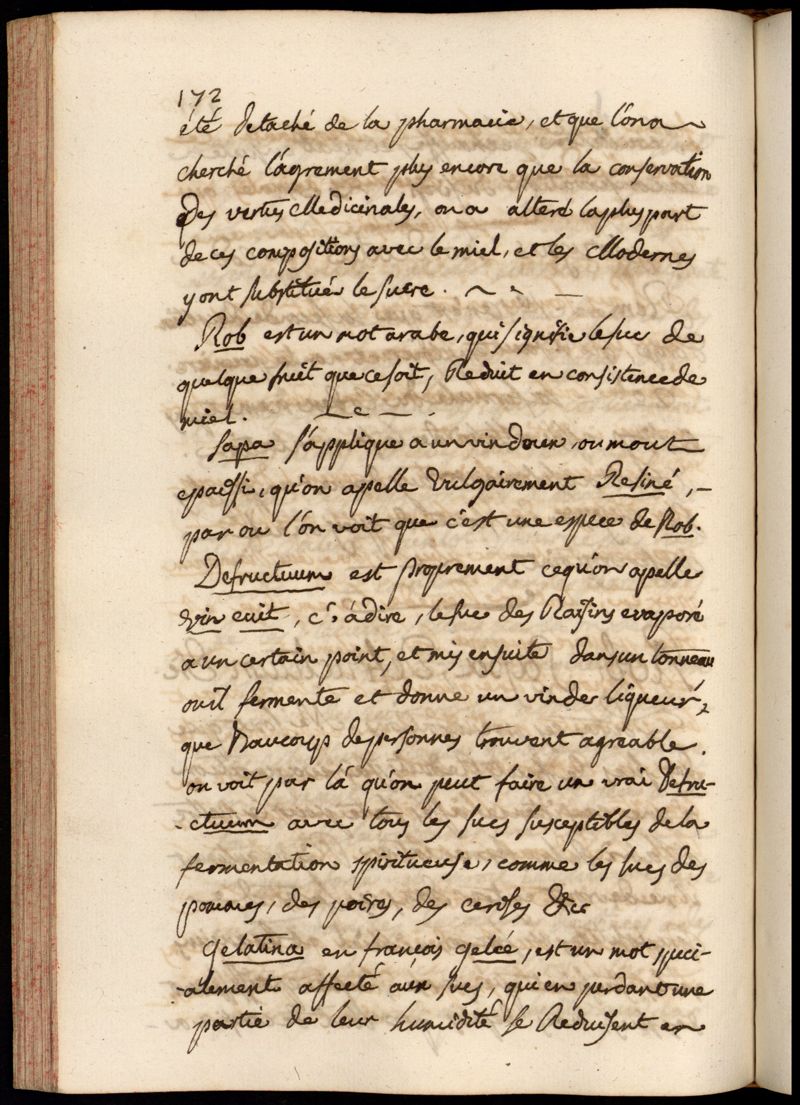 172
été detaché de la pharmacie, et que l'on a
cherché l'agrement plus encore que la conservation
des vertus Medicinales, on a alteré la plus part
de ces compositions avec le miel, et les Modernes
y ont substitué le sucre.
Rob est un mot arabe, qui signifie le suc de
quelque fruit que ce soit, Reduit en consistence de
miel.
Sapa s'applique a un vin doux, ou mout
epaissi, qu'on apelle Vulgairement Resiné,
par ou l'on voit que c'est une espece de Rob.
Defructuum est proprement ce qu'on apelle
vin cuit, c. à dire, le suc des Raisins evaporé
a un certain point, et mis ensuite dans un tonneau
ou il fermente et donne un vin de liqueur,
que Beaucoup de personnes trouvent agreable.
on voit par là qu'on peut faire un vrai Defru-
-ctuum avec tous les sucs susceptibles de la
fermentation spiritueuse, comme les sucs des
pommes, des poires, des cerises &c
Gelatina en françois gelée, est un mot speci-
-alement affecté aux sucs, qui en perdant une
partie de leur humidité se Reduisent en